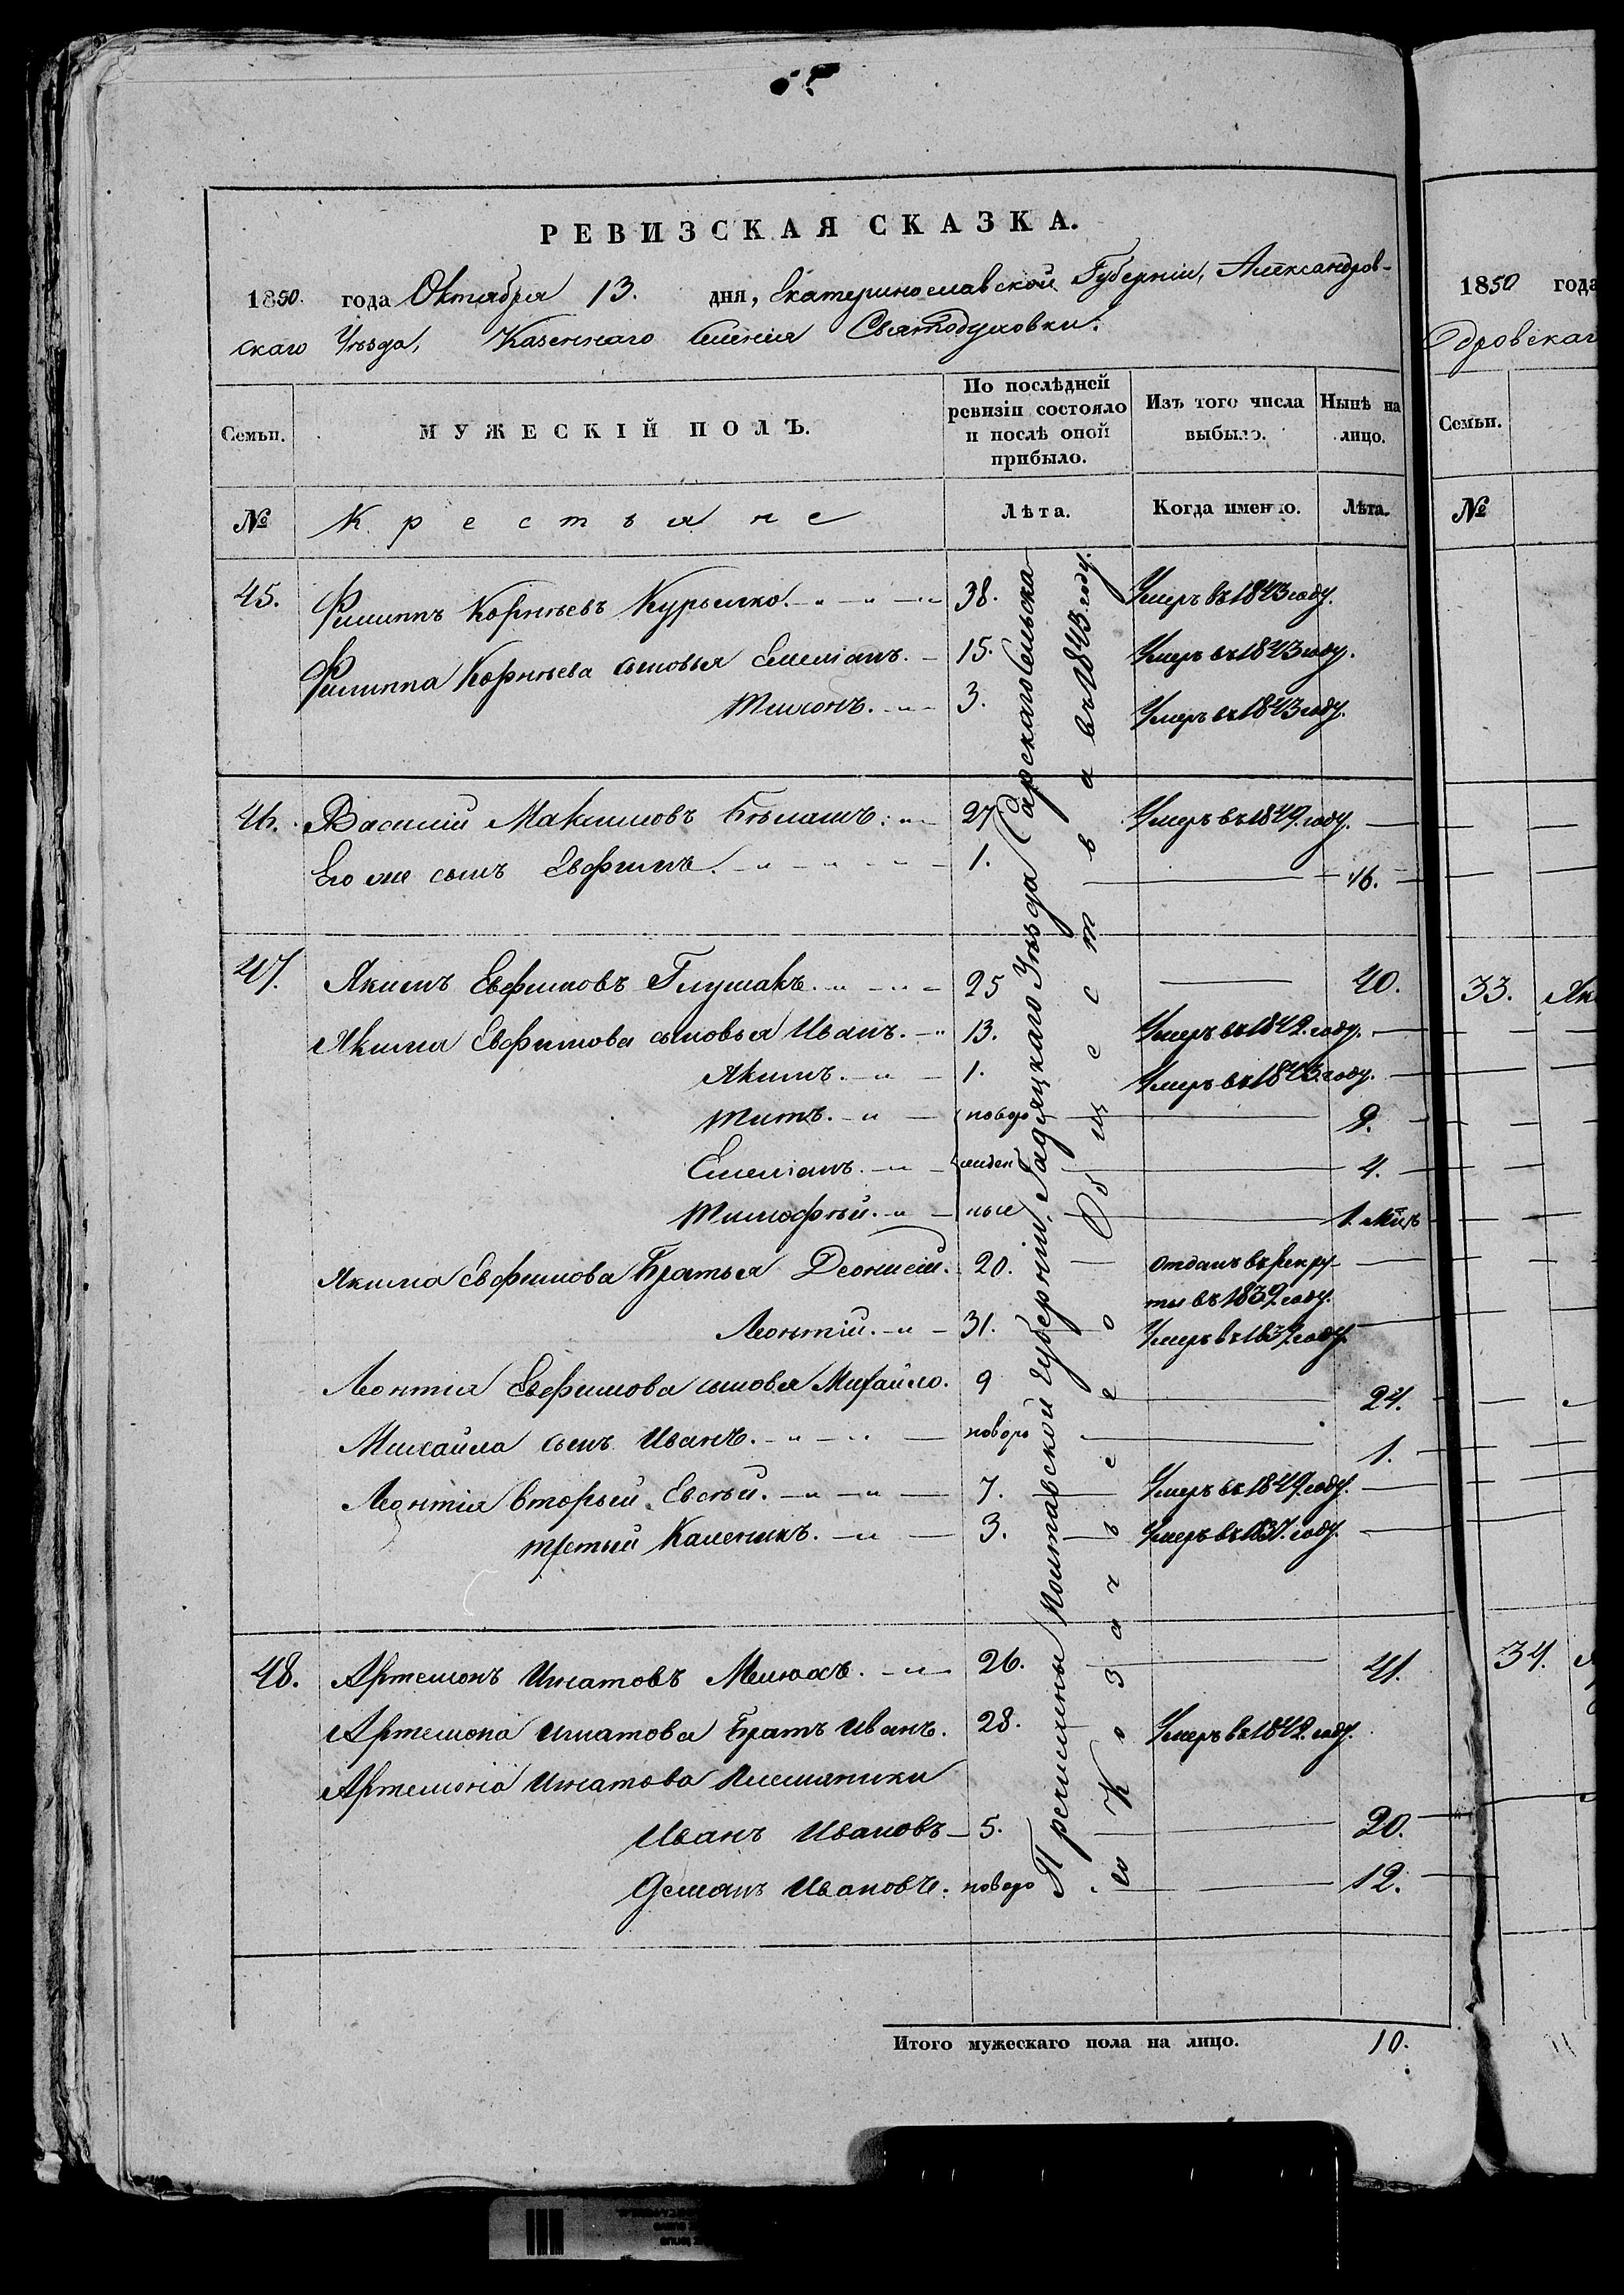 РЕВИЗСКАЯ СКАЗКА.
1850. года Октября 13. дня, Екатеринославской Губерніи, Александров-
скаго Уѣзда, Казеннаго Святодуховки.
Семьи.
МУЖЕСКІЙ ПОЛЪ.
По послѣдней ревизіи состояло и послѣ оной прибыло.
Изъ того числа выбыло.
Нынѣ на лицо.
№
Крестьяне
Лѣта.
Когда именно.
Лѣта.
45. Филиппъ Корнѣевъ Курылко. 38. Умеръ въ 1843 году.
Филиппа Корнѣева сыновья Емеліанъ. 15. Умеръ въ 1843 году.
Тихонъ. 3. Умеръ въ 1843 году.
46. Василій Максимовъ Бѣлашъ. 27 Умеръ въ 1849. году.
Его же сынъ Евфимъ. 1. 16.
47. Якимъ Евфимовъ Глушакъ. 25 40.
Якима Евфимова сыновья Иванъ. 13. Умеръ въ 1842. году.
Якимъ. 1. Умеръ въ 1843. году.
Титъ. новоро 9.
Емеліанъ. жден 4.
Тимофѣй. ные 1. мѣц
Якима Евфимова Братья Деонисій. 20. Отданъ въ рекру-
ты въ 1839. году.
Леонтій. 31. Умеръ въ 1837. году.
Леонтія Евфимова сыновья Михайло. 9 24.
Михайла сынъ Иванъ. новоро 1.
Леонтія вторый Евсѣй. 7. Умеръ въ 1849. году.
третый Каленикъ. 3. Умеръ въ 1837. году.
48. Артемонъ Игнатовъ Мелюхъ. 26. 41.
Артемона Игнатова Братъ Иванъ. 28. Умеръ въ 1842. году.
Артемона Игнатова Племяники
Иванъ Ивановъ 5. 20.
Демянъ Ивановъ. новоро 12.
Причислены Полтавской Губерніи, Гадяцкаго Уѣзда Сарскаго Сельска-
го Козачьего Общества въ 1843. году.
Итого мужескаго пола на лицо. 10.
1850 года
дровскаг
Семьи.
№
33. Як
34.